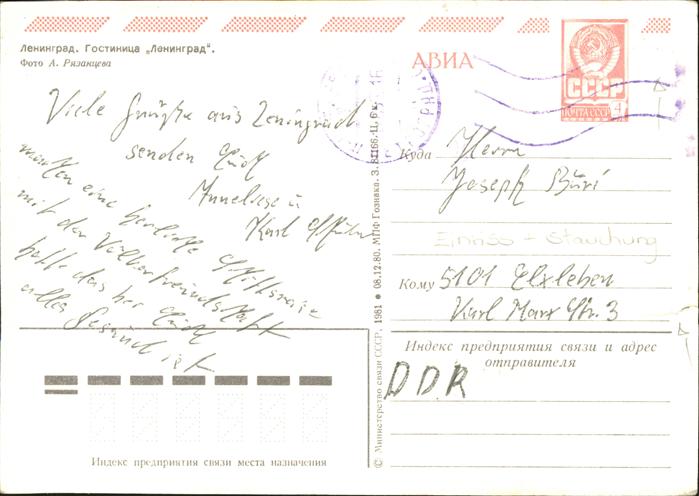 Ленинград. Гостиница „Ленинград".
Фото А. Рязанцева
АВИА
СССР
ПОЧТА СССР
4
Viele Grüße aus Leningrad
senden Euch
Anneliese u
Karl
machen eine herrliche Schiffsreise
mit der Völkerfreundschaft
hoffe das bei Euch
alles Gesund ist
Куда
Herrn
Joseph Büri
Einriss + Stauchung
Кому
5101 Elxleben
Karl Marx Str. 3
Индекс предприятия связи и адрес
отправителя
DDR
Индекс предприятия связи места назначения
© Министерство связи СССР, 1981 ● 08.12.80. МПФ Гознака. З. 81166. Ц. 6 к.